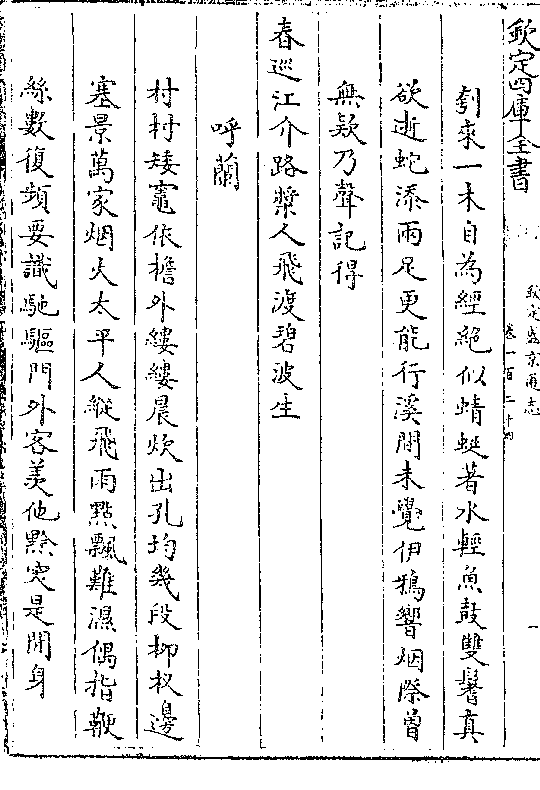 欽定四庫全書
欽定盛京通志
卷一百二十四
一
刳來一木自為經絶似蜻蜓著水輕魚鼓雙鬐真
欲逝蛇添兩足更能行溪間未覺伊鴉響烟際曽
無欵乃聲記得
春巡江介路槳人飛渡碧波生
呼蘭
村村矮竈依檐外縷縷晨炊出孔均幾段柳杈邊
塞景萬家烟火太平人縱飛雨㸃飄難濕偶指鞭
絲數復頻要識馳驅門外客羨他黔突是閒身